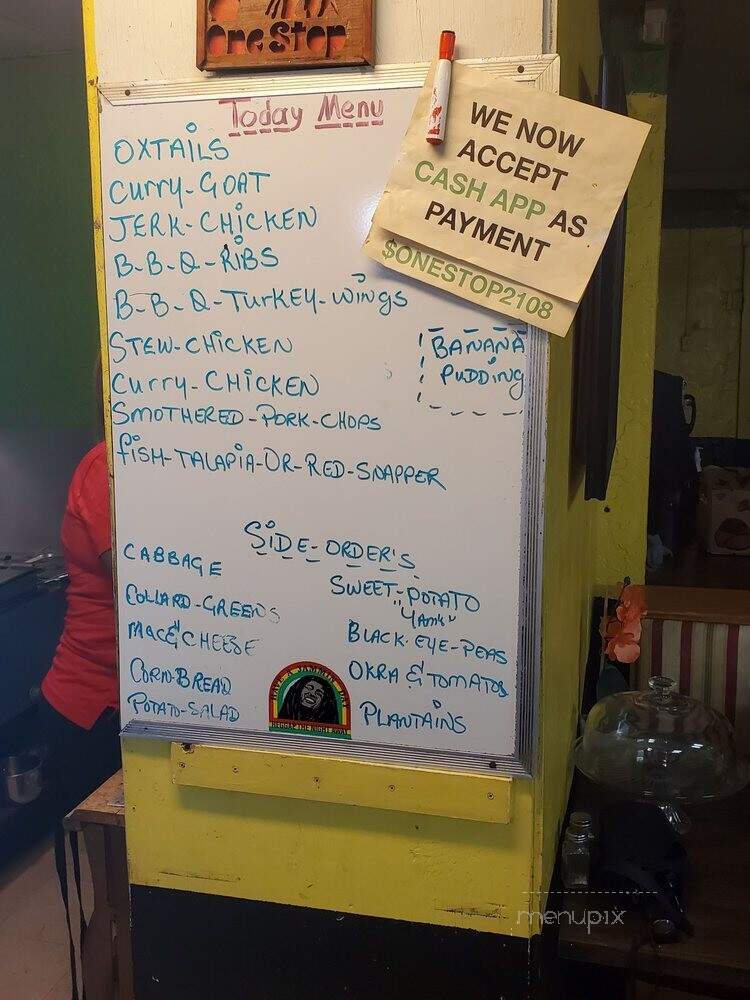 One Stop
Today Menu
OXTAiLS
Curry-GOAT
JERK-CHiCKEN
B-B-Q-RiBS
B-B-Q-TurKEY-wiNgs
STEW-CHiCKEN
Curry-CHiCKEN
SMOTHERED-PORK-CHOPS
fiSH-TALAPiA-OR-RED-SNAPPER
WE NOW
ACCEPT
CASH APP AS
PAYMENT
$ONESTOP2108
BANANA
PUDDiNg
SiDE-ORDER'S
CABBAGE
COLLARD-GREENS
MACE & CHEESE
CORN-BREAD
POTATO-SALAD
SWEET-POTATO
"YAMS"
BLACK-EYE-PEAS
OKRA & TOMATOS
PLANTAiNS
HAVE A JAMMIN' DAY
REGGAE THE NIGHT AWAY
menupix